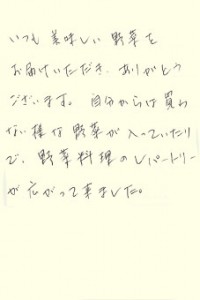 いつも美味しい野菜を
お届けいただき、ありがとう
ございます。自分からは買わ
ない様な野菜が入っていたり
で、野菜料理のレパートリー
が広がって来ました。